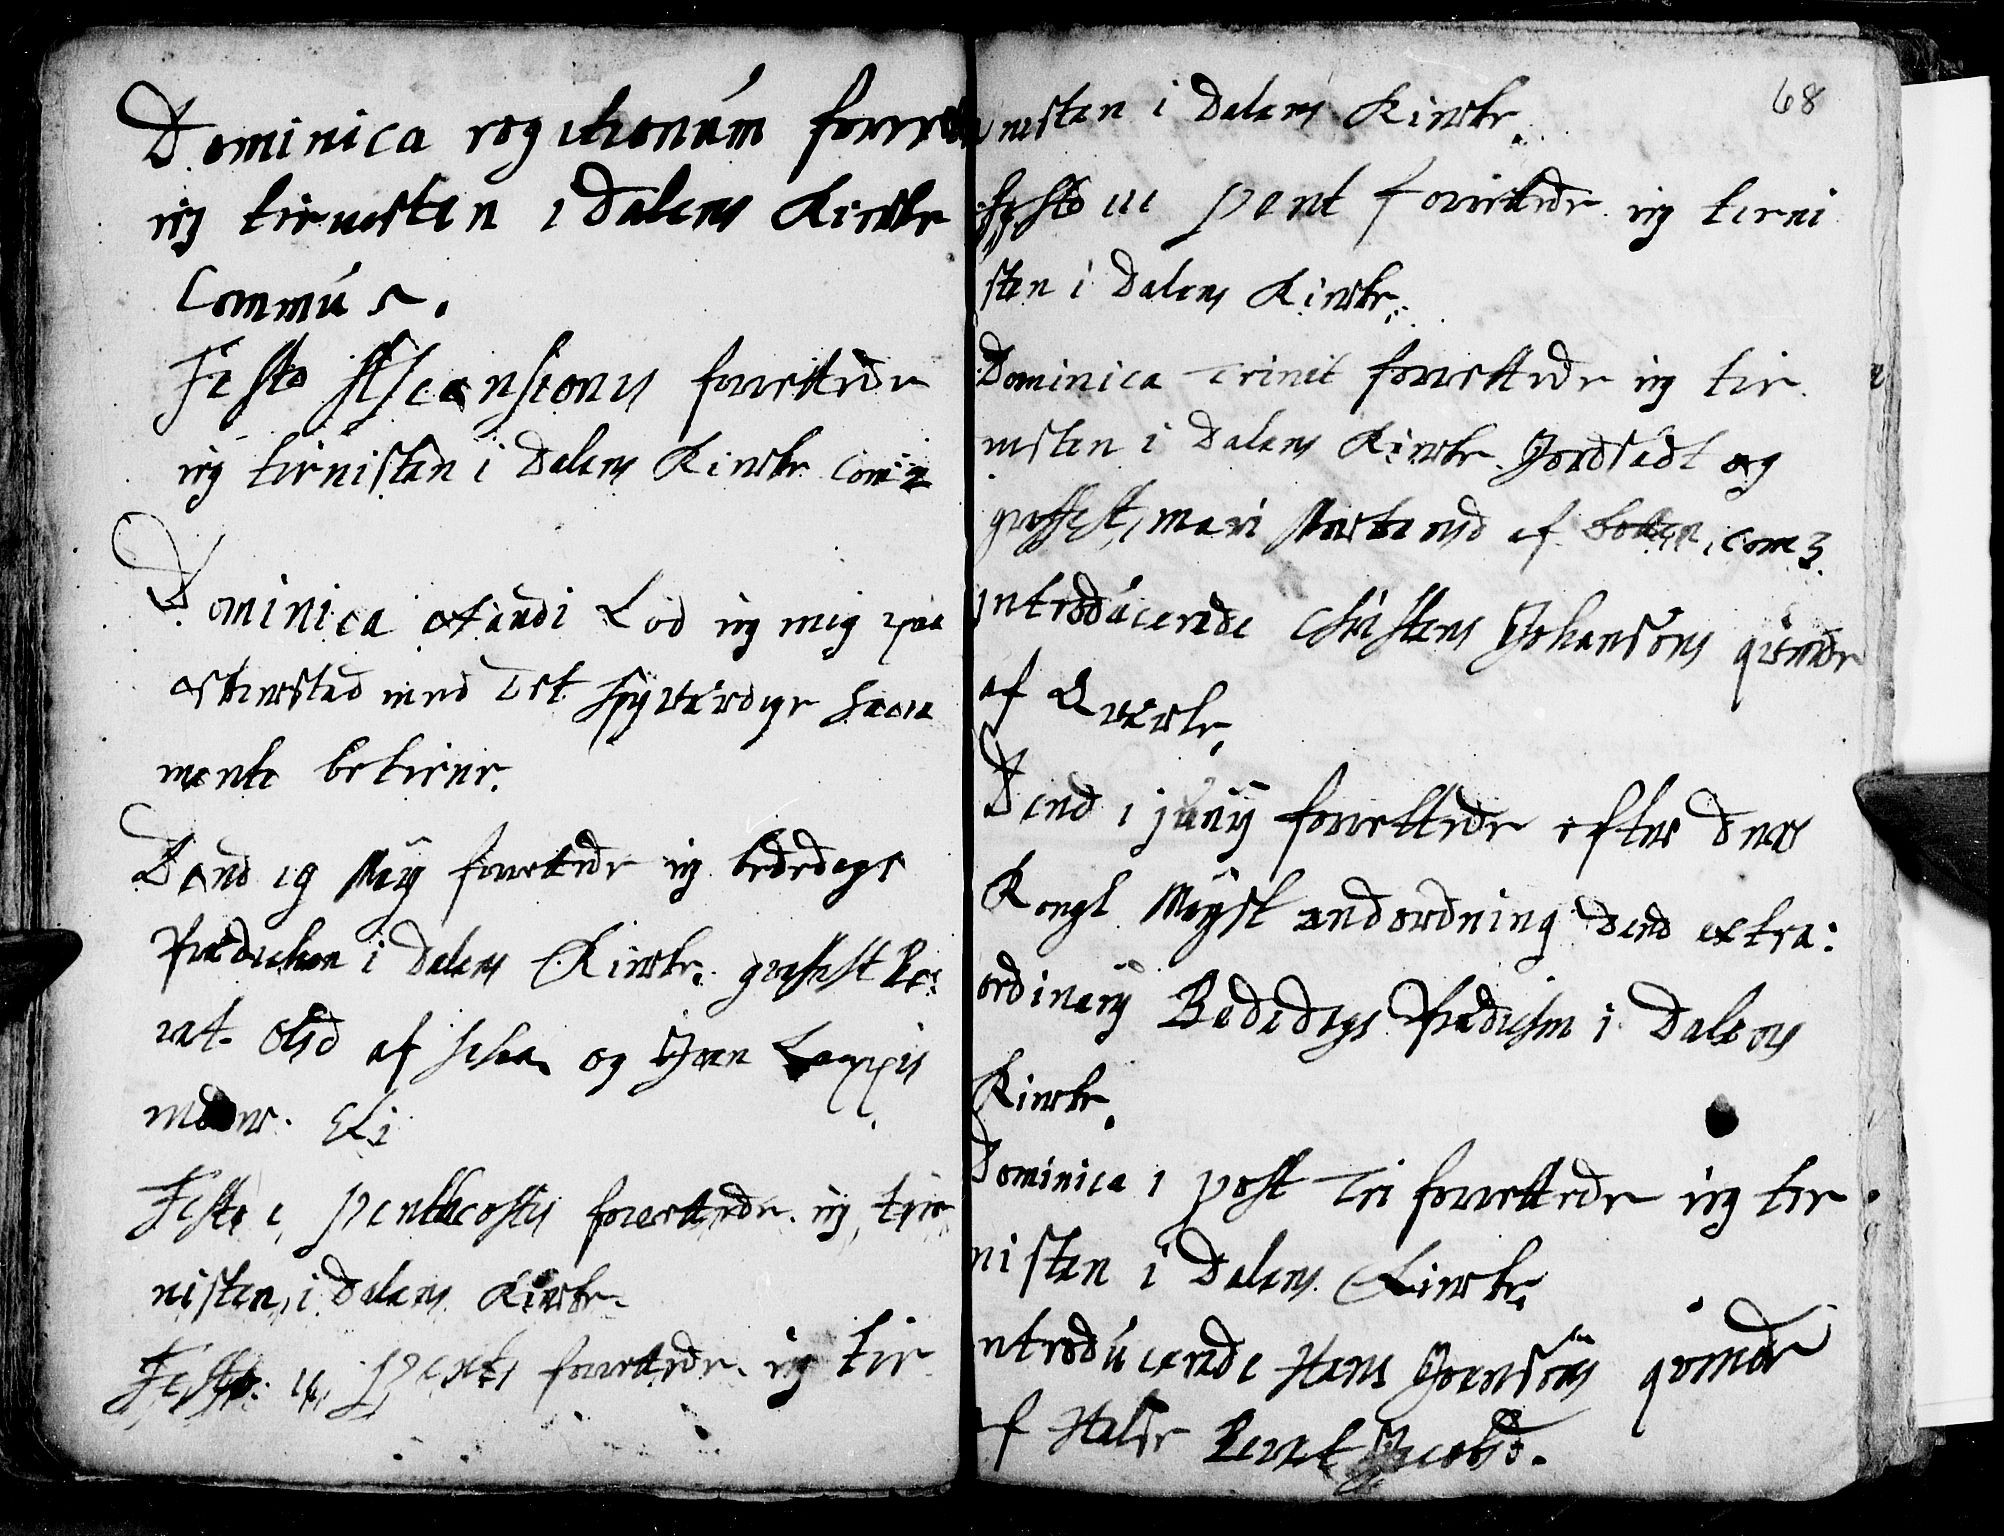 Dominica rogationúm forrett
ieg tienesten i Dalens Kircke
Commú 2.
Festo Ascensionis forrettede
ieg tienisten i Dalens Kircke Com: 2
Dominica exaúdi Lod ieg mig paa
med det høyværdige Sacra
mente betiene.
Dend 19 Maij forrettede ieg bededags
Prædicken i Dalens Kircke. grafest Be:
rat Olsd af og Joen
moder. Eli
Festo 1 Penthecostis forrettede ieg tie
nisten i Dalens Kircke.
Festo: 11, Pente forrettede ieg tie
68
nisten i Dalens Kircke.
Festo 111 Pent forrettede ieg tieni
sten i Dalens Kircke.
Dominica Trinit forrettede ieg tie
nisten i Dalens Kircke. Jordsadt og
graffest, mari af com 3.
Introdúcerede Christens Johansøns qvinde
af
Dend 1 júnij forrettede efter Deris
Kongl Mayst andordning dend extra:
ordinarij Bededags Prædichen i Dalens
Kircke.
Dominica 1 post Tri forrettede ieg tie
nisten i Dalens Kircke.
ntrodúcerede Hans Joensøns qvinde
af Halse Bernt Jacobsd.